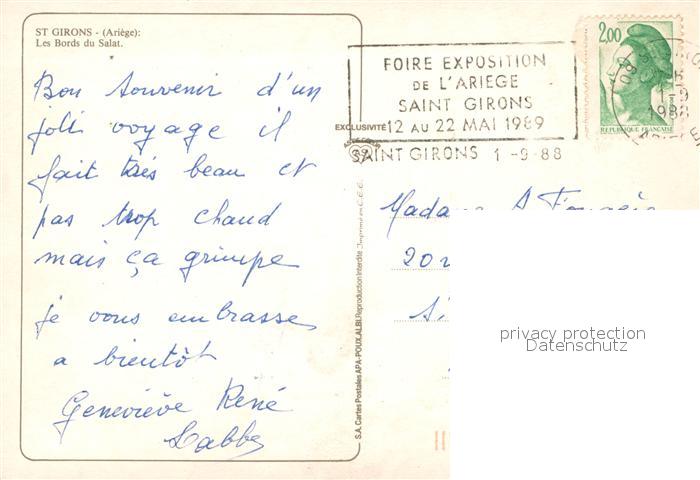 ST GIRONS - (Ariège):
Les Bords du Salat.
Bon souvenir d'un
joli voyage il
fait très beau et
pas trop chaud
mais ça grimpe
je vous embrasse
a bientôt
Geneviève René
Labbe
EXCLUSIVITÉ
S.A. Cartes Postales APA-POUX, ALBI, Reproduction Interdite Imprimé en C.E.E.
FOIRE EXPOSITION
DE L'ARIEGE
SAINT GIRONS
12 AU 22 MAI 1989
SAINT GIRONS 1 -9-88
2,00
REPUBLIQUE FRANÇAISE
Madame
20
privacy protection
Datenschutz